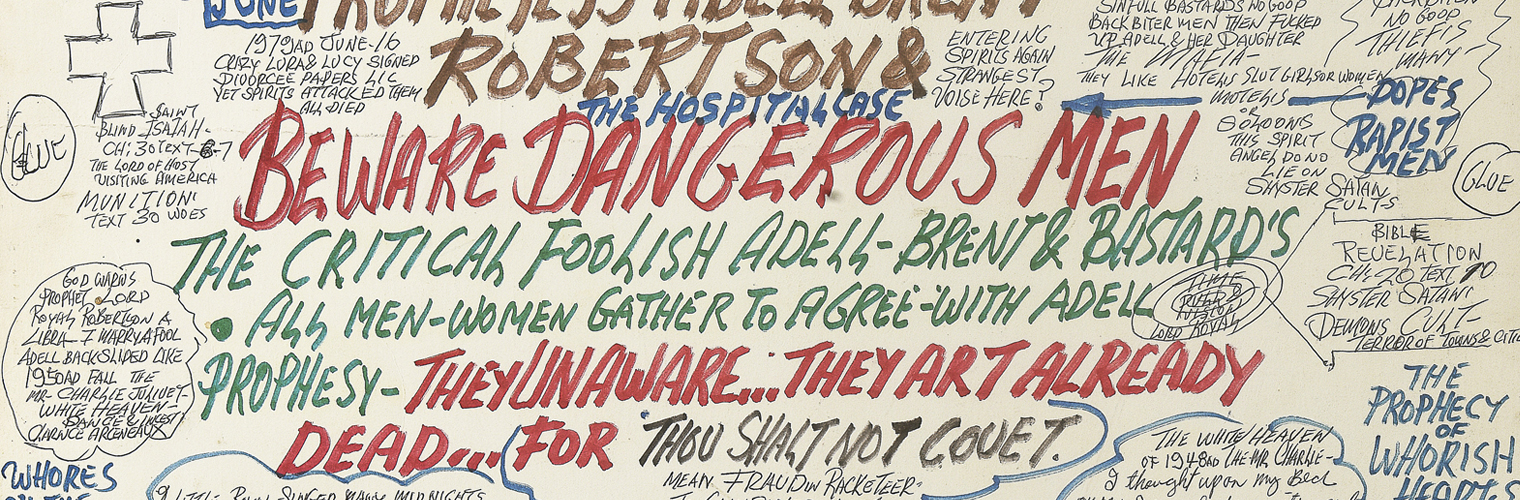 JUNE
PROPHETESS ADELL BRENT
ROBERTSON &
THE HOSPITAL CASE
BEWARE DANGEROUS MEN
THE CRITICAL FOOLISH ADELL-BRENT & BASTARD'S
• ALL MEN-WOMEN GATHER TO AGREE-WITH ADELL
PROPHESY- THEY UNAWARE... THEY ART ALREADY
DEAD... FOR THOU SHALT NOT COVET.
MEAN FRAUD RACKETEER-
1979AD JUNE-16
CRAZY LURA & LUCY SIGNED
DIVORCEE PAPERS LIC
YET SPIRITS ATTACKLED THEM
ALL DIED
SAINT
BLIND ISAIAH-
CH; 30 TEXT-6-7
THE LORD OF HOST
VISITING AMERICA
MUNITION'
TEXT 30 WOES
GLUE
GOD WARNS
PROPHET LORD
ROYAL ROBERTSON A
LIBRA- I MARRY A FOOL
ADELL BACKSLIPED LIKE
1950AD FALL THE
MR- CHARLIE JOLIVET-
WHITE HEAVEN-
DANCE &
CLARNCE ARCENEAUX
WHORES
ENTERING
SPIRITS AGAIN
STRANGEST
VOISE HERE?
SINFULL BASTARDS NO GOOD
BACKBITER MEN THEN FUCKED
UP ADELL & HER DAUGHTER
THE MAFIA-
THEY LIKE HOTELS SLUT GIRLS OR WOMEN
MOTELLS
OR
SOLOONS
THIS SPIRIT
ANGEL DO NO
LIE ON
SHYSTER SATAN
CULTS
NO GOOD
THIEFIS
MANY
DOPES
RAPIST
MEN
GLUE
BIBLE
REVELATION
CH: 20 TEXT 10
SHYSTER SATANS
DEMONS CULT-
TERROR OF TOWNS &
TIME
LORD ROYAL
THE
PROPHECY
OF
WHORISH
HEARTS
THE WHITE HEAVEN
OF 1948AD THE MR CHARLIE-
I thought upon my Bed